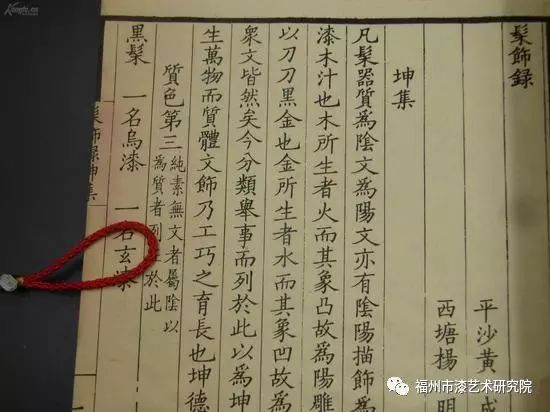 髹飾錄
平沙黃成
西塘楊明
坤集
凡髹器質為陰文為陽文亦有陰陽描飾為
漆木汁也木所生者火而其象凸故為陽雕
以刀刀黑金也金所生者水而其象凹故為
眾文皆然矣今分類舉事而列於此以為坤
生萬物而質體文飾乃工巧之育長也坤德
質色第三
純素無文者屬陰以
為質者列於此
黑髹 一名烏漆 一名玄漆
髹飾錄坤集
福州市漆艺术研究院